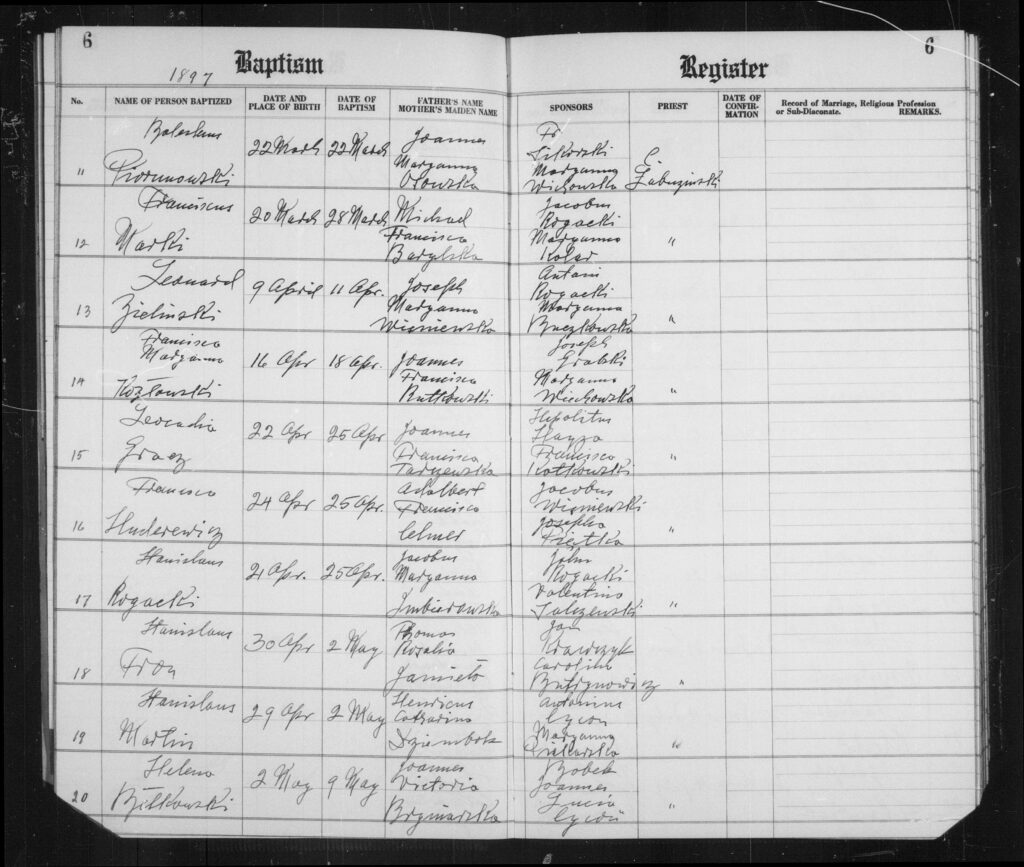 6
6
Baptism
Register
1897
No.
NAME OF PERSON BAPTIZED
DATE AND PLACE OF BIRTH
DATE OF BAPTISM
FATHER'S NAME MOTHER'S MAIDEN NAME
SPONSORS
PRIEST
DATE OF CONFIR-MATION
Record of Marriage, Religious Profession or Sub-Diaconate. REMARKS.
11
22 March
22 March
Joannes
Maryanna
Osowska
Fr
Sikorski
Maryanna
Wichowska
12
Franciscus
Marki
20 March
28 March
Michael
Francisca
Jacobus
Rogacki
Maryanna
Kolar
"
13
Leonard
Zielinski
9 April
11 Apr.
Joseph
Maryanna
Wisniewska
Antoni
Rogacki
Maryanna
Baczkowska
"
14
Francisca
Maryanna
Kozlowski
16 Apr
18 Apr.
Joannes
Francisca
Rutkowski
Joseph
Grabski
Maryanna
Wichowska
"
15
Leocadia
22 Apr
25 Apr
Joannes
Francisca
Hipolitus
Francisca
Kotkowski
"
16
Francisca
Huderewicz
24 Apr
25 Apr.
Adalbert
Francisca
Celmer
Jacobus
Wisniewski
Josepha
"
17
Stanislaus
Rogacki
21 Apr.
25 Apr.
Jacobus
Maryanna
John
Rogacki
Valentina
"
18
Stanislaus
30 Apr
2 May
Thomas
Rosalia
Jan
Krawczyk
Carolina
"
19
Stanislaus
Martin
29 Apr
2 May
Henricus
Catharina
Antonius
Cycon
Maryanna
"
20
Helena
2 May
9 May
Joannes
Victoria
Bobek
Joannes
Lucia
Cycon
"